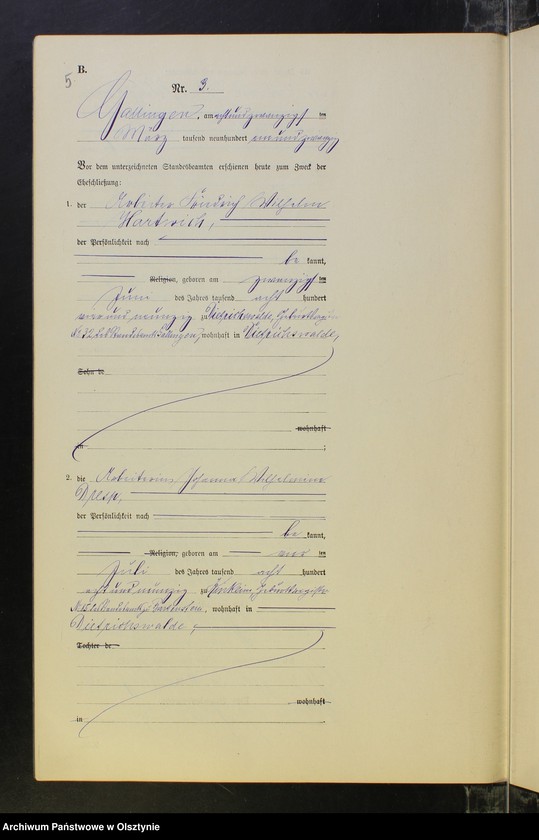 B.
5
Nr. 3.
Gallingen, am achtundzwanzigsten
März tausend neunhundert einundzwanzig
Vor dem unterzeichneten Standesbeamten erschienen heute zum Zweck der
Eheschließung:
1. der Arbeiter Friedrich Wilhelm
Hartwich,
der Persönlichkeit nach
be kannt,
Religion, geboren am zwanzigsten
Juni des Jahres tausend acht hundert
vierundneunzig zu Dietrichswalde, Geburtsregister
Nr. 32 des Standesamts Gallingen, wohnhaft in Dietrichswalde,
Sohn de
wohnhaft
in ;
2. die Arbeiterin Johanna Wilhelmine
Dresp,
der Persönlichkeit nach
be kannt,
Religion, geboren am
Juli des Jahres tausend acht hundert
achtundneunzig zu Geburtsregister
des Standesamts Bartenstein, wohnhaft in
Dietrichswalde,
Tochter de
wohnhaft
in
Archiwum Państwowe w Olsztynie